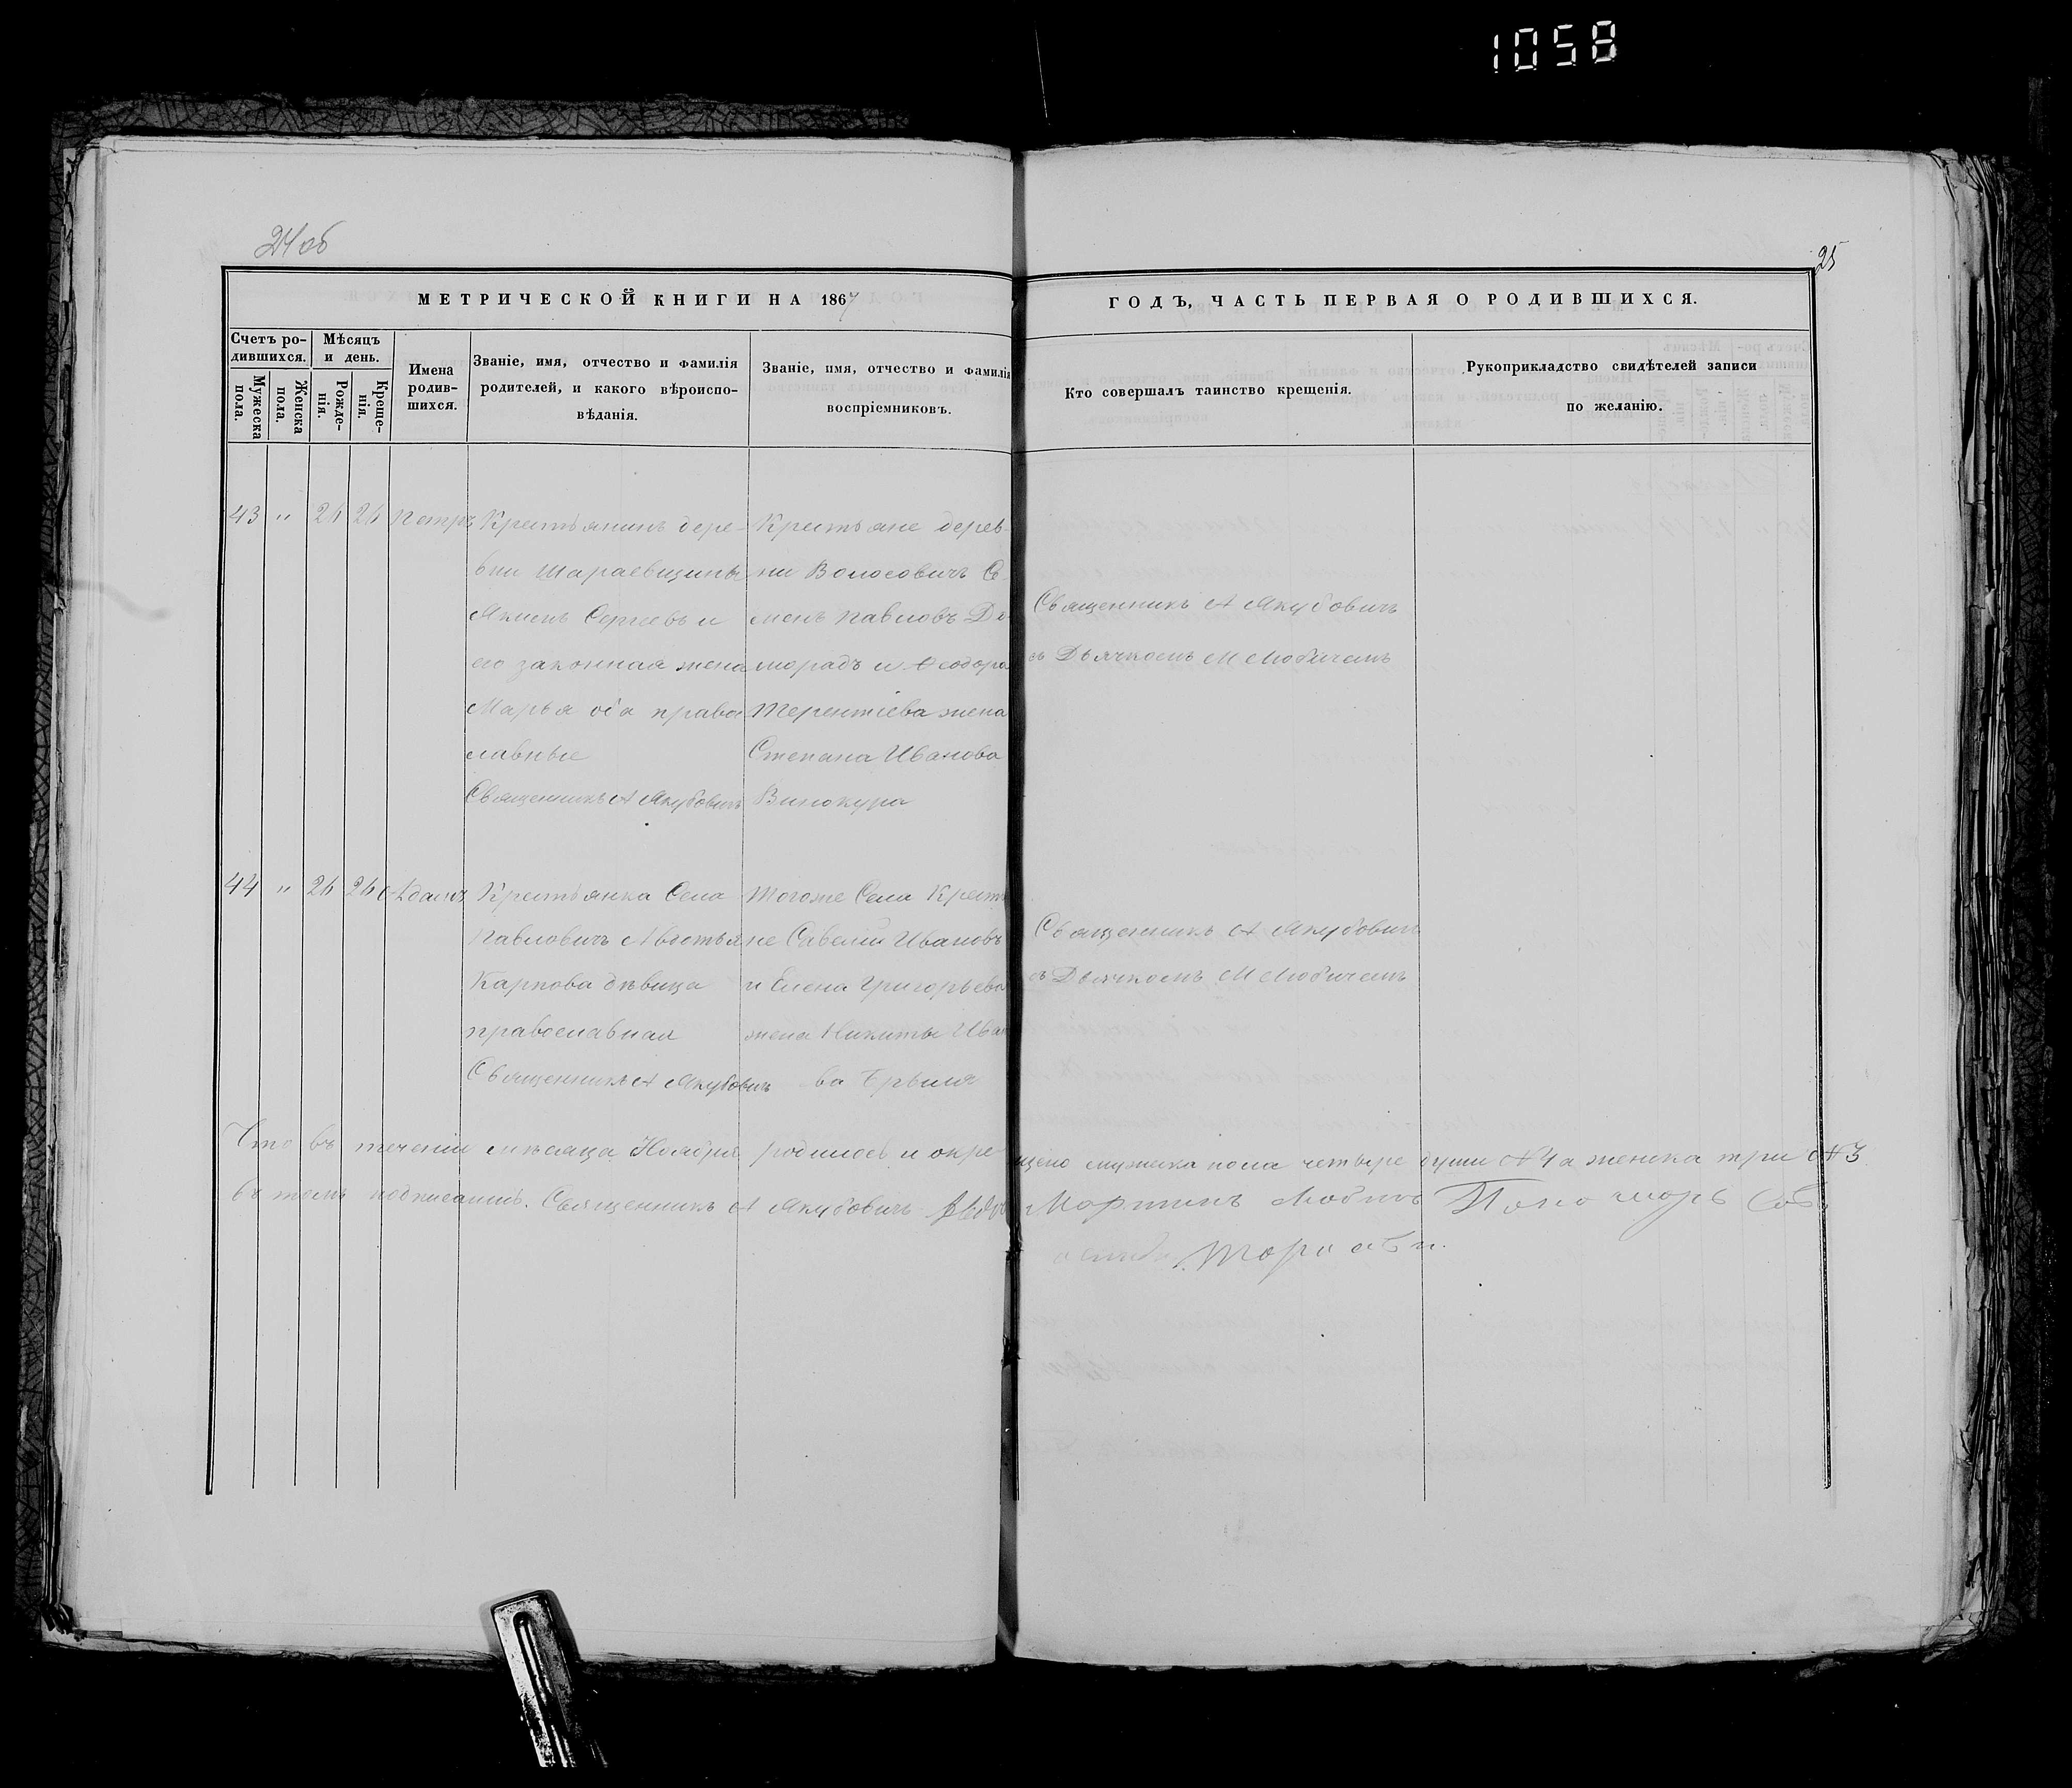 1058
24об
25
МЕТРИЧЕСКОЙ КНИГИ НА 1867
ГОДЪ, ЧАСТЬ ПЕРВАЯ О РОДИВШИХСЯ.
Счетъ ро-
дившихся.
Мужеска
пола.
Женска
пола.
Мѣсяцъ
и день.
Рожде-
нія.
Креще-
нія.
Имена
родив-
шихся.
Званіе, имя, отчество и фамилія
родителей, и какого вѣроиспо-
вѣданія.
Званіе, имя, отчество и фамилія
воспріемниковъ.
Кто совершалъ таинство крещенія.
Рукоприкладство свидѣтелей записи
по желанію.
43 " 26 26 Петръ
Крестьянинъ дере-
вни Шараевщины
Якимъ Сергѣевъ и
его законная жена
Марья оба право
славные
Священникъ А Якубовичъ
Крестьяне дерев
ни Волосовичъ Се
менъ Павловъ До
морадъ и Ѳеодора
Терентіева жена
Степана Иванова
Винокура
Священникъ А Якубовичъ
съ Дьячкомъ М Любичемъ
44 " 26 26 Адамъ
Крестьянка Села
Павловичъ Настья
Карпова дѣвица
православная
Священникъ А Якубовичъ
Тогоже Села Кресть
не Савелій Ивановъ
и Елена Григорьева
жена Никиты Ива
ва
Священникъ А Якубовичъ
съ Дьячкомъ М Любичемъ
Что въ теченіи мѣсяца Ноября родилось и окре-
щено мужеска пола четыре души №4 а женска три №3
въ томъ подписались. Священникъ А Якубовичъ
Мартинъ Пономорь